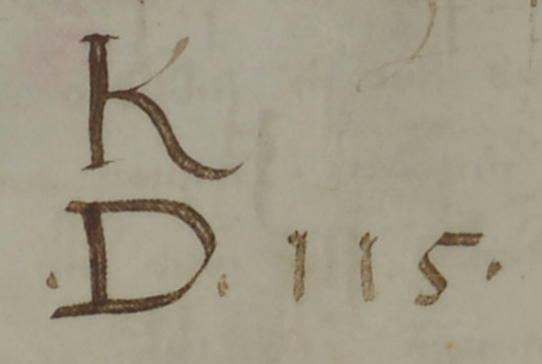 K
.D. 115.